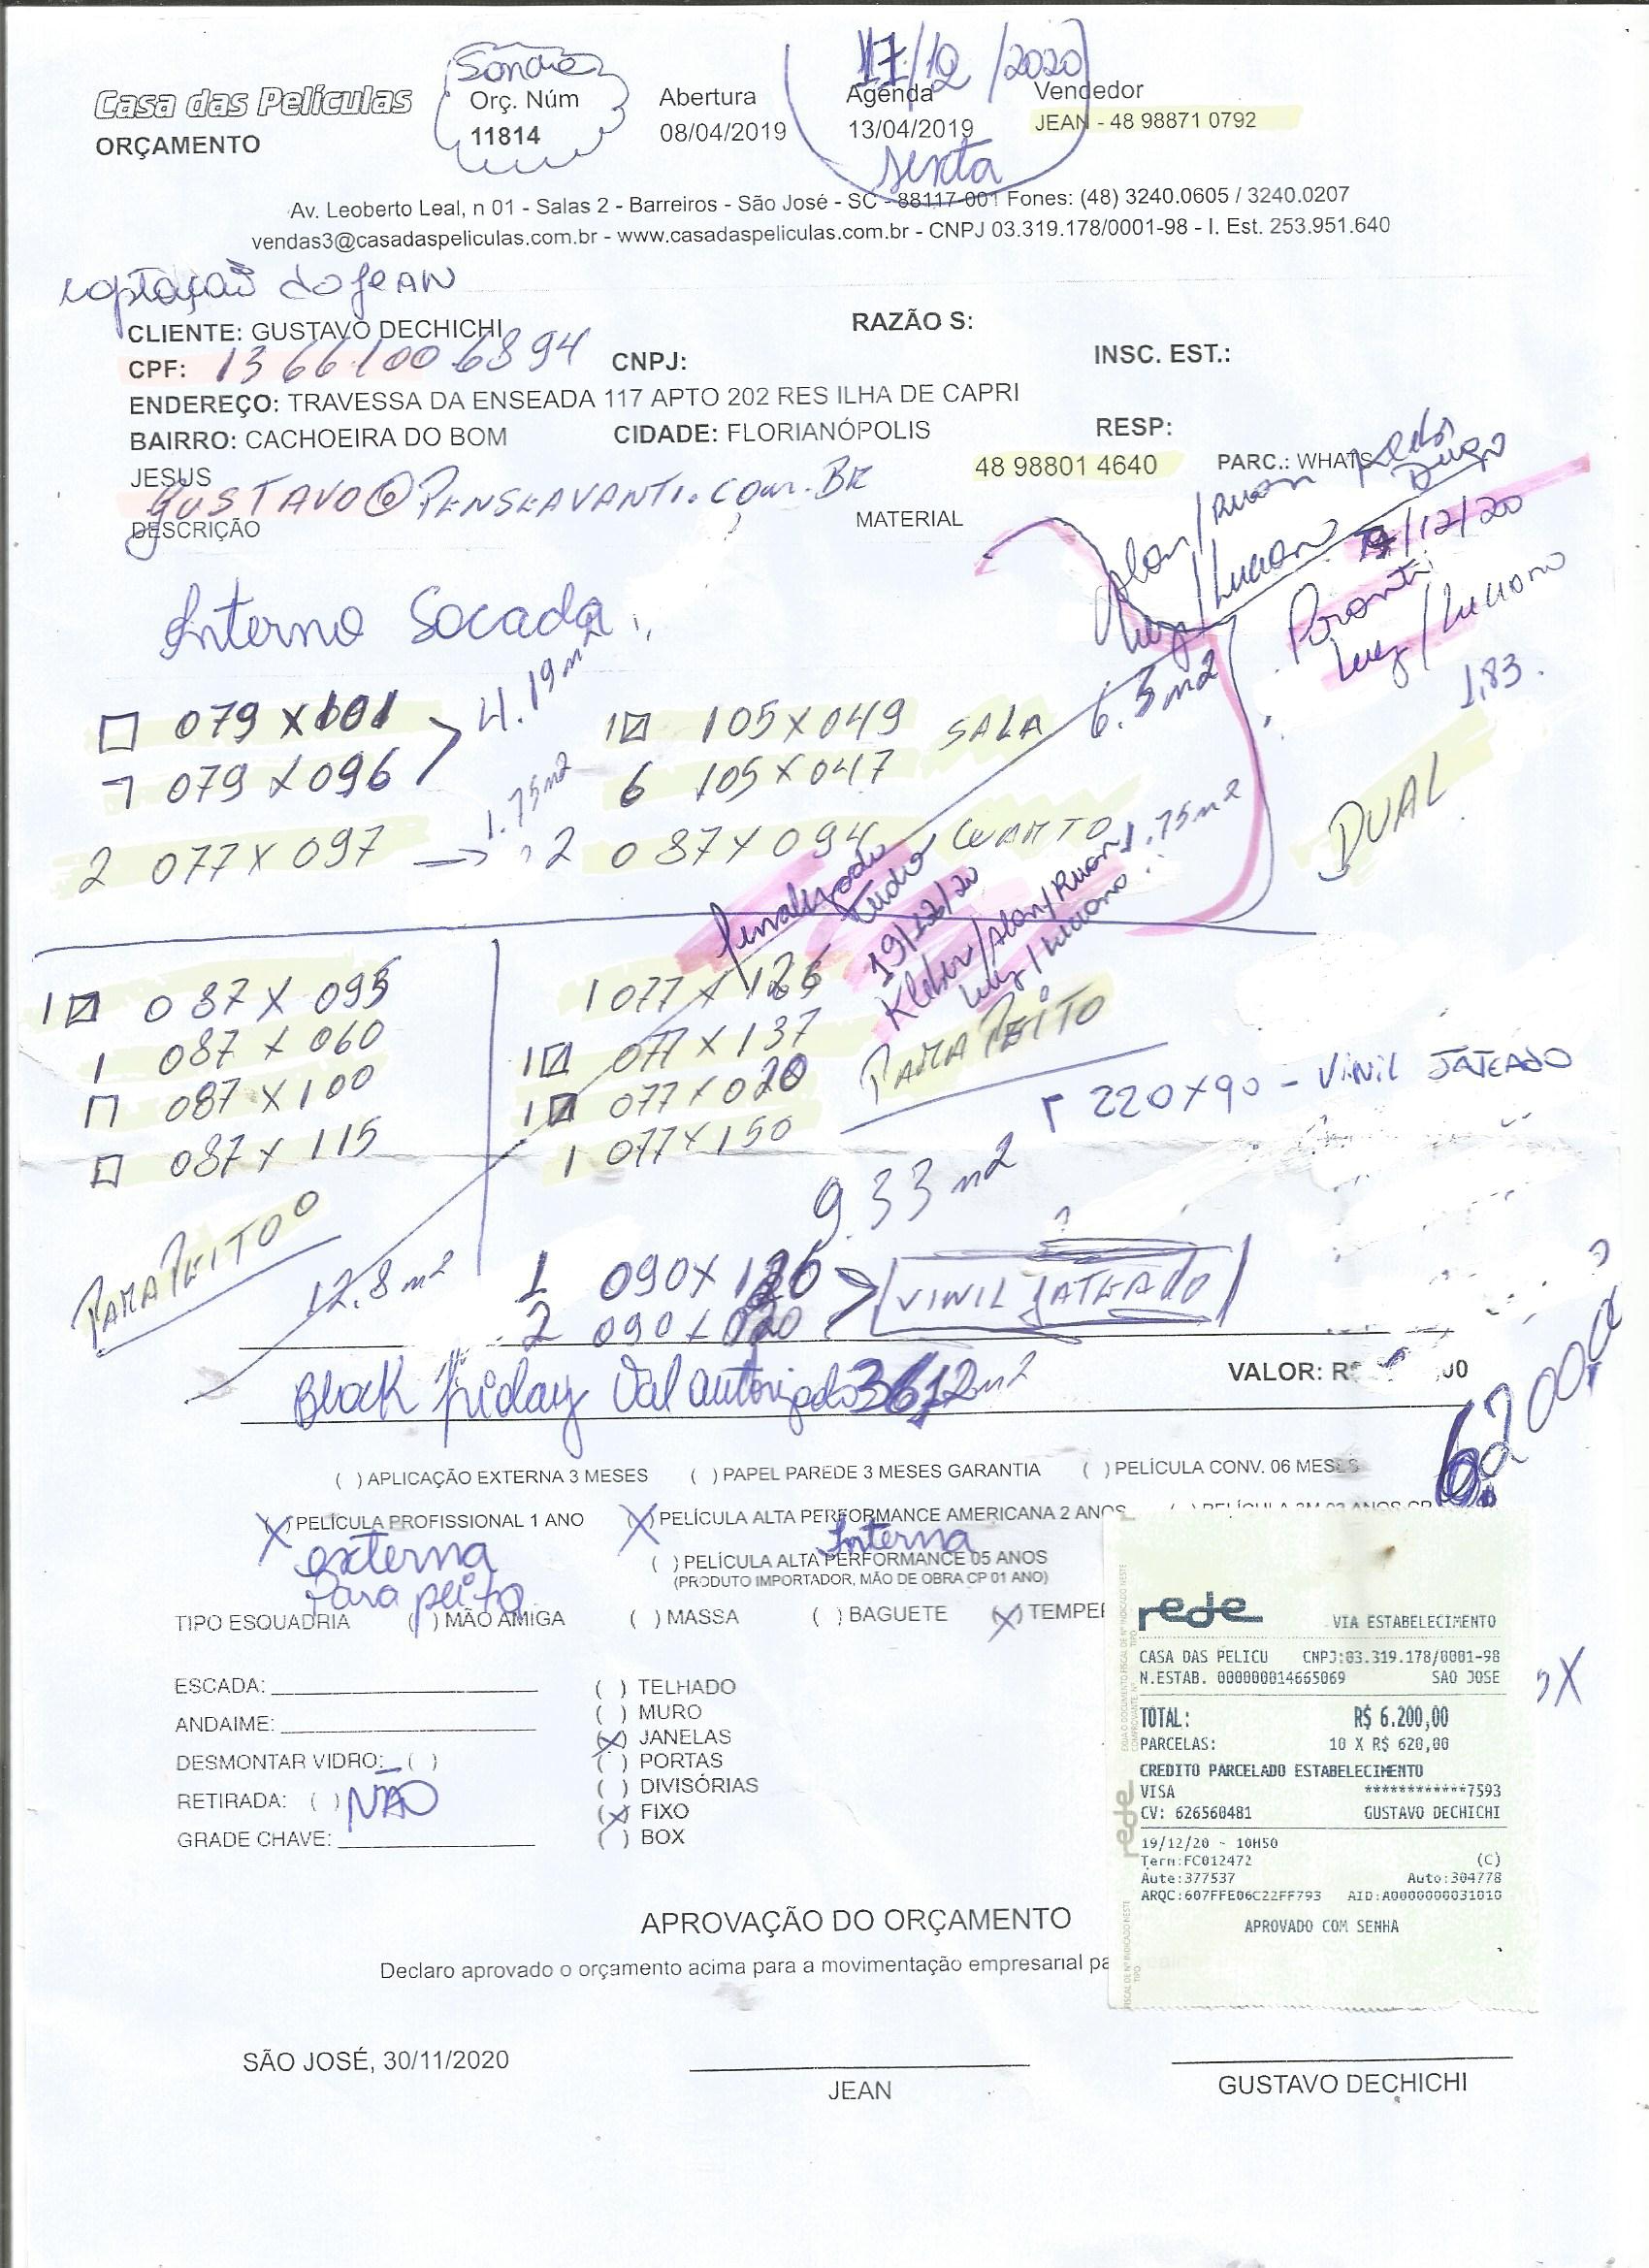 17/12/2020
Casa das Películas
Orç. Núm
Abertura
Agenda
Vendedor
ORÇAMENTO
11814
08/04/2019
13/04/2019
JEAN - 48 98871 0792
sexta
Av. Leoberto Leal, n 01 - Salas 2 - Barreiros - São José - SC - 88117-001 Fones: (48) 3240.0605 / 3240.0207
vendas3@casadaspeliculas.com.br - www.casadaspeliculas.com.br - CNPJ 03.319.178/0001-98 - I. Est. 253.951.640
captação do JEAN
CLIENTE: GUSTAVO DECHICHI
RAZÃO S:
CPF: 13661006894
CNPJ:
INSC. EST.:
ENDEREÇO: TRAVESSA DA ENSEADA 117 APTO 202 RES ILHA DE CAPRI
BAIRRO: CACHOEIRA DO BOM JESUS
CIDADE: FLORIANÓPOLIS
RESP:
48 98801 4640
PARC.: WHATS
GUSTAVO@PENSEAVANTI.COM.BR
DESCRIÇÃO
MATERIAL
/12/20
Luiz/Luciano
Interno Sacada
4.19m2
6.3m2
1,83.
079 X 101
7 079 X 096
1 105 X 049
6 105 X 047
SALA
2 077 X 097
1.75m2
2 087 X 094
QUARTO
1.75m2
DUAL
Finalizado tudo
19/12/20
Kleber/Alan/Ruan
Luiz/Luciano
1 087 X 095
1 087 X 060
087 X 100
087 X 115
PARAPEITO
12.8m2
1 077 X 126
1 077 X 137
1 077 X 020
1 077 X 150
PARAPEITO
220X90 - VINIL JATEADO
9.33m2
1 090 X 126
2 090 X 020
VINIL JATEADO
Black friday Val autorizado 36,12m2
VALOR: R$
6.200,00
( ) APLICAÇÃO EXTERNA 3 MESES
( ) PAPEL PAREDE 3 MESES GARANTIA
( ) PELÍCULA CONV. 06 MESES
(X) PELÍCULA PROFISSIONAL 1 ANO
(X) PELÍCULA ALTA PERFORMANCE AMERICANA 2 ANOS
externa
Parapeito
Interna
( ) PELÍCULA ALTA PERFORMANCE 05 ANOS
(PRODUTO IMPORTADOR, MÃO DE OBRA CP 01 ANO)
TIPO ESQUADRIA
( ) MÃO AMIGA
( ) MASSA
( ) BAGUETE
(X) TEMPE
ESCADA:
ANDAIME:
DESMONTAR VIDRO: ( )
RETIRADA: ( ) NÃO
GRADE CHAVE:
( ) TELHADO
( ) MURO
(X) JANELAS
( ) PORTAS
( ) DIVISÓRIAS
(X) FIXO
( ) BOX
rede
VIA ESTABELECIMENTO
CASA DAS PELICU CNPJ:03.319.178/0001-98
N.ESTAB. 000000014665069 SAO JOSE
TOTAL: R$ 6.200,00
PARCELAS: 10 X R$ 620,00
CREDITO PARCELADO ESTABELECIMENTO
VISA ************7593
CV: 626560481 GUSTAVO DECHICHI
19/12/20 - 10H50
Term:FC012472 (C)
Aute:377537 Auto:304778
ARQC:607FFE06C22FF793 AID:A0000000031010
APROVADO COM SENHA
APROVAÇÃO DO ORÇAMENTO
Declaro aprovado o orçamento acima para a movimentação empresarial pa
SÃO JOSÉ, 30/11/2020
JEAN
GUSTAVO DECHICHI